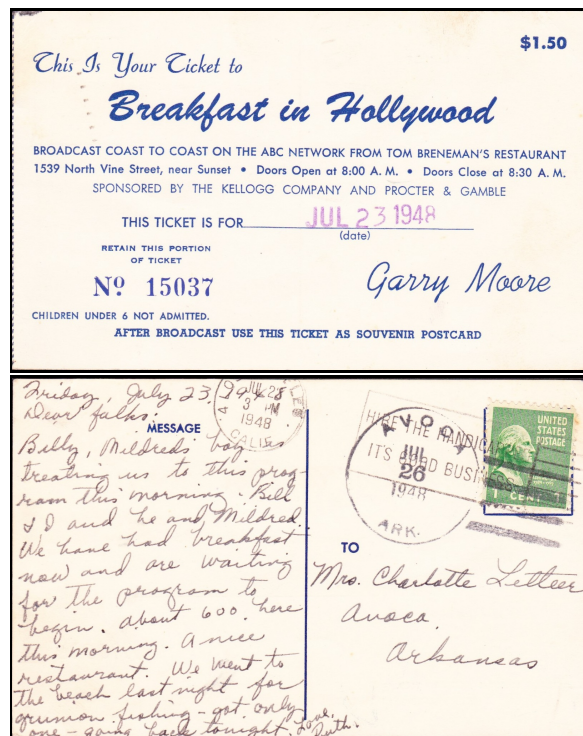 $1.50
This Is Your Ticket to
Breakfast in Hollywood
BROADCAST COAST TO COAST ON THE ABC NETWORK FROM TOM BRENEMAN'S RESTAURANT
1539 North Vine Street, near Sunset • Doors Open at 8:00 A. M. • Doors Close at 8:30 A. M.
SPONSORED BY THE KELLOGG COMPANY AND PROCTER & GAMBLE
THIS TICKET IS FOR JUL 23 1948
(date)
RETAIN THIS PORTION
OF TICKET
Nº 15037
Garry Moore
CHILDREN UNDER 6 NOT ADMITTED.
AFTER BROADCAST USE THIS TICKET AS SOUVENIR POSTCARD
Friday, July 23, 1948
Dear folks:
MESSAGE
Billy, Mildreds boy is
treating us to this prog-
ram this morning. Bill
& I and he and Mildred.
We have had breakfast
now and are waiting
for the program to
begin. about 600 here
this morning. A nice
restaurant. We went to
the beach last night for
grunion fishing - got only
one - going back tonight. Love,
Ruth.
JUL 23
3 PM
1948
CALIF.
HIRE THE HANDICAPPED
IT'S GOOD BUSINESS
AVOCA
JUL
26
1948
ARK.
UNITED
STATES
POSTAGE
1 CENT 1
TO
Mrs. Charlotte Letteer
Avoca
Arkansas